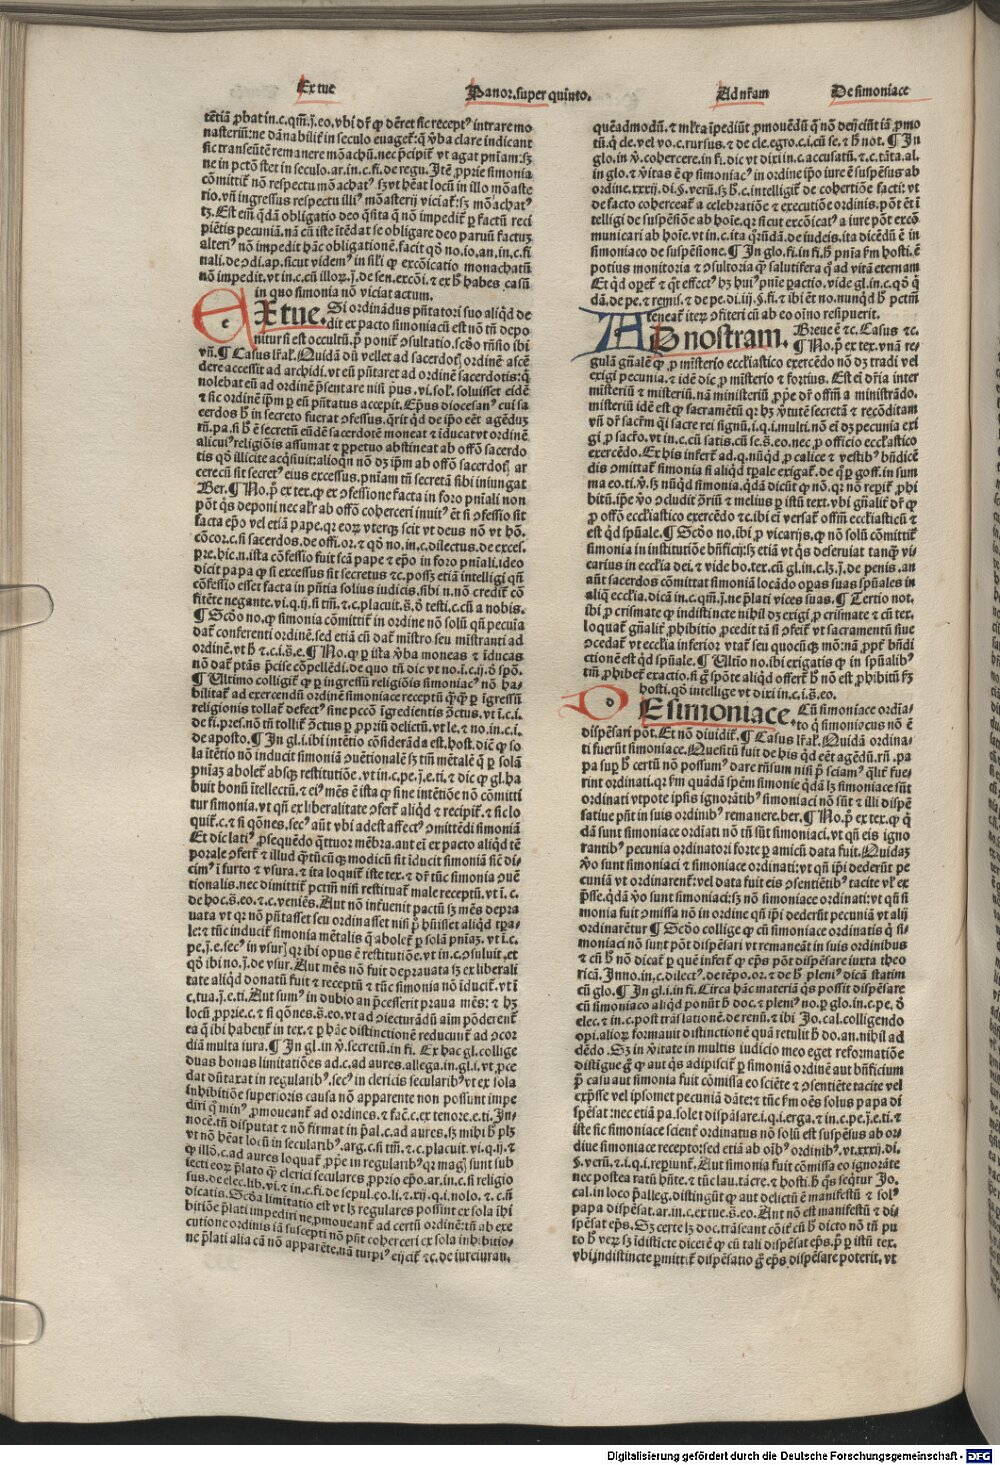 Ex tue Panor. super quinto. Ad nr̄am De simoniace
tētiā ꝓbat in.c.qm̄.j.eo.vbi dr̄ ꝙ dēret sic receptꝰ intrare mo
nasteriū: ne dānabilit̄ in seculo euaget̄: q̄ v̄ba clare indicant
sic transeūtē remanere monachū. nec p̄cipit̄ vt agat pn̄iam: sꝫ
ne in pctō stet in seculo. ar.in.c.fi.de regu. Itē ꝓprie simonia
cōmittit̄ nō respectu mōachatꝰ sꝫ vt hēat locū in illo mōaste
rio. vn̄ ingressus respectu illiꝰ mōasterij viciat̄: sꝫ mōachatꝰ
tꝫ. Est em̄ q̄dā obligatio deo q̄sita q̄ nō impedit̄ ꝑ factū reci
piētis pecuniā. nā cū iste itēdat se obligare deo paruū factuꝫ
alteriꝰ nō impedit hāc obligationē. facit qd̄ no.io.an.in.c.fi
nali.de ɔdi.ap.sicut videmꝰ in sil̄i ꝙ excōicatio monachatū
nō impedit. vt in.c.cū illorꝫ.j.de sen.excōi. ⁊ ex h̄ habes casū
in quo simonia nō viciat actum.
EX tue. Si ordinādus pn̄tatori suo aliqd̄ de
dit ex pacto simoniacū est nō tn̄ depo
nitur si est occultū. p̄ ponit̄ ɔsultatio. scd̄o rn̄sio ibi
vn̄. ¶ Casus lr̄al̄. Quidā dū vellet ad sacerdotꝫ ordinē ascē
dere accessit ad archidi. vt eū pn̄taret ad ordinē sacerdotis: q̄
nolebat eū ad ordinē p̄sentare nisi p̄us.vi.sol̄.soluisset eidē
⁊ sic ordinē ip̄m ꝑ eū pn̄tatus accepit. Ep̄us diocesanꝰ cui sa
cerdos h̄ in secreto fuerat ɔfessus. q̄rit qd̄ de ip̄o eēt agēduꝫ
rn̄.pa.si h̄ ē secretū eūdē sacerdotē moneat ⁊ iducat vt ordinē
alicuiꝰ religiōis assumat ⁊ ꝑpetuo abstineat ab offō sacerdo
tis qd̄ illicite acq̄siuit: alioqn̄ nō dꝫ ip̄m ab offō sacerdotꝫ ar
cere cū sit secretꝰ eius excessus. pn̄iam tn̄ secretā sibi iniungat
Ber. ¶ No.p̄ ex tex.ꝙ ex ɔfessione facta in foro pn̄iali non
pōt q̄s deponi nec al̄r ab offō coherceri inuitꝰ ēt si ɔfessio sit
facta ep̄o vel etiā pape. qꝛ eorꝫ vterqꝫ scit vt deus nō vt hō.
cōcor.c.si sacerdos.de offi.or.⁊ qd̄ no.in.c.dilectus.de exces.
p̄re.hic.n.ista cōfessio fuit scā pape ⁊ ep̄o in foro pn̄iali. ideo
dicit papa ꝙ si excessus sit secretus ⁊c. possꝫ etiā intelligi qn̄
cōfessio esset facta in pn̄tia solius iudicis. sibi n.nō credit̄ cō
fitēte negante.vi.q.ij.si tm̄.⁊.c.placuit.⁊.de testi.c.cū a nobis.
¶ Scd̄o no.ꝙ simonia cōmittit̄ in ordine nō solū qn̄ pecuīa
dat̄ conferenti ordinē. sed etiā cū dat̄ mīstro seu mīstranti ad
ordinē. vt h̄ ⁊.c.i.s̄.e. ¶ No.ꝙ ꝑ ista v̄ba moneas ⁊ iducas
nō dat̄ ptās p̄cise cōpellēdi. de quo tn̄ dic vt no.i.c.ij.de spō.
¶ Vltimo colligit̄ ꝙ ꝑ ingressū religiōis simoniacꝰ nō ha-
bilitat̄ ad exercendū ordinē simoniace receptū
religionis tollat̄ defectꝰ siue pccō īgredientis
de fi.pres.nō tn̄ tollit̄ ꝑ ꝓpriū delictū. vt le.⁊ no.in.c.i.
de aposto. ¶ In gl.i.ibi intētio cōsiderāda est. host. dic ꝙ so
la itētio nō inducit simoniā
pn̄iaꝫ abolet̄ absqꝫ restitutiōe. vt in.c.pe.j.e.ti.⁊ dic ꝙ gl.ha
buit bonū itellectū. ⁊ eiꝰ mēs ē ista ꝙ sine intētiōe nō cōmitti
tur simonia. vt qn̄ ex liberalitate ɔfert̄ aliqd̄ ⁊ recipit̄. ⁊ sic lo
quit̄.c.⁊ si qōnes. secꝰ aūt vbi adest affectꝰ ɔmittēdi simoniā
Et dic latiꝰ ꝓsequēdo q̄ttuor mēbra. aut eī ex pacto aliqd̄ tē
porale ɔfert̄ ⁊ illud q̄tūcūqꝫ modicū sit iducit simoniā sic̄ di-
cimꝰ i furto ⁊ vsura. ⁊ ita loquit̄ iste tex. ⁊ dr̄ tūc simonia ɔuē
tionalis. nec dimittit̄ pctm̄ nisi restituat̄ male receptū. vt i.c.
de hoc.s̄.eo.⁊.c.veniēs. Aut nō interuenit pactū sꝫ mēs depra
uata vt qꝛ nō pn̄tasset seu ordinasset nisi p̄ hūisset aliqd̄ tpa-
le: ⁊ tūc inducit̄ simonia mētalis q̄ abolet̄ ꝑ solā pn̄iaꝫ. vt i.c.
pe.j.e. secꝰ in vsurꝫ qꝛ ibi opus ē restitutiōe. vt in.c.ɔsuluit. et
qd̄ ibi no.j.de vsur. Aut mēs nō fuit deprauata sꝫ ex liberali
tate aliqd̄ donatū fuit ⁊ receptū ⁊ tūc simonia nō iducit̄. vt i
c.tua.j.e.ti. Aut sumꝰ in dubio an p̄cesserit praua mēs: ⁊ hꝫ
locū ꝓprie.c.⁊ si qōnes.s̄.eo. vt ad ɔiecturādū aīm pōderent̄
ea q̄ ibi habent̄ in tex. ⁊ ꝑ hāc distinctionē reducunt̄ ad ɔcor
diā multa iura. ¶ In gl.in v̄.secretū.in fi. Ex hac gl.collige
duas bonas limitatiōes ad.c.ad aures. allega.in gl.i. vt ꝓce
dat dūtaxat in regularibꝰ. secꝰ in clericis secularibꝰ vt ex sola
inhibitiōe superioris causa nō apparente non possunt impe
diri q̄ minꝰ ꝓmoueant̄ ad ordines. ⁊ fac̄.c.ex tenore.e.ti. In-
nocē.tn̄ disputat ⁊ nō firmat in p̄al.c.ad aures. sꝫ mihi h̄ plꝫ
vt nō hēat locū in secularibꝰ. arg.c.si tm̄.⁊.c.placuit.vi.q.ij.⁊
ꝙ illd̄.c.ad aures loquat̄ ꝓpe in regularibꝰ qꝛ magꝭ sunt sub
iecti eorꝫ p̄lato ꝙ clerici seculares ꝓprio ep̄o. ar.in.c.si religio
sus.de elec.lib.vi.⁊ in.c.fi.de sepul.eo.li.⁊.xij.q.i.nolo.⁊.c.n̄
dicatis. Scd̄a limitatio est vt lꝫ regulares possunt ex sola ihi
bitiōe p̄lati impediri ne ꝓmoueant̄ ad certū ordinē: tn̄ ab exe
cutione ordinis iā suscepti nō pn̄t coherceri ex sola inhibitio-
ne p̄lati alia cā nō apparēte. nā turpiꝰ eijcit̄ ⁊c. de iureiuran.
quēadmodū. ⁊ ml̄ta īpediūt ꝓmouēdū q̄ nō deijciūt iā ꝓmo
tū. q̄ cle.vel vo.c.rursus.⁊ de cle.egro.c.i.cū se.⁊ h̄ not. ¶ In
glo.in v̄.cohercere.in fi.dic vt dixi in.c.accusatū.⁊.c.tāta.al.
in glo.⁊ v̄itas ē ꝙ simoniacꝰ in ordine ip̄o iure ē suspēsus ab
ordine.xxxij.di.§.verū. sꝫ h̄.c.intelligit̄ de cohertiōe facti: vt
de facto coherceat̄ a celebratiōe ⁊ executiōe ordinis. pōt ēt i
telligi de suspēsiōe ab hoīe. qꝛ sicut excōicatꝰ a iure pōt excō
municari ab hoīe. vt in.c.ita q̄rūdā.de iudeis. ita dicēdū ē in
simoniaco de suspēsione. ¶ In glo.fi.in fi.h̄ pn̄ia fm hosti. ē
potius monitoria ⁊ ɔsultoria q̄ꝫ salutifera q̄ ad vitā eternam
Et qd̄ oꝑet̄ ⁊ q̄t effectꝰ hꝫ huiꝰ pn̄ie ꝑactio. vide gl.in.c.qd̄ q̄
dā.de pe.⁊ remis.⁊ de pe.di.iij.§.fi.⁊ ibi ēt no.nunqd̄ h̄ pctm̄
teneat̄ iteꝝ ɔfiteri cū ab eo oīno resipuerit.
AD nostram. Breue ē ⁊c. Casus ⁊c.
¶ No.p̄ ex tex.vnā re-
gulā gn̄alē ꝙ ꝓ mīsterio eccl̄iastico exercēdo nō dꝫ tradi vel
exigi pecunia. ⁊ idē dic ꝓ mīsterio ⁊ fortius. Est eī dr̄ia inter
misteriū ⁊ misteriū. nā ministeriū ꝓpe dr̄ offm̄ a ministrādo.
misteriū idē est ꝙ sacramētū. qꝛ hꝫ v̄tutē secretā ⁊ recōditam
vn̄ dr̄ sacr̄m q̄i sacre rei signū.i.q.i.multi. nō eī dꝫ pecunia exi
gi ꝓ sacr̄o. vt in.c.cū satis.cū se.s̄.eo. nec ꝓ officio eccl̄iastico
exercēdo. Ex his infert̄ ad.q.nūqd̄ ꝓ calice ⁊ vestibꝰ bn̄dicē
dis ɔmittat̄ simonia si aliqd̄ tp̄ale exigat̄. de q̄ ꝑ goff.in sum
ma eo.ti.v̄.sꝫ nūqd̄ simonia. q̄dā dicūt ꝙ nō. qꝛ nō reperit̄ ꝓhi
bitū. ip̄e v̄o ɔcludit ɔriū ⁊ melius ꝑ istū text. vbi gn̄alit̄ dr̄ ꝙ
ꝓ offō eccl̄iastico exercēdo ⁊c. ibi eī versat̄ offm̄ eccl̄iasticū ⁊
est qd̄ sp̄uale. ¶ Scd̄o no.ibi ꝓ vicarijs. ꝙ nō solū cōmittit̄
simonia in institutiōe bn̄ficij: sꝫ etiā vt q̄s deseruiat tanqꝫ vi
carius in eccl̄ia dei. ⁊ vide bo.tex.cū gl.in.c.lꝫ.j.de penis. an
aūt sacerdos cōmittat simoniā locādo oꝑas suas sp̄uales in
aliq̄ eccl̄ia. dicā in.c.qm̄.j.ne p̄lati vices suas. ¶ Tertio not.
ibi ꝓ crismate ꝙ indistincte nihil dꝫ exigi ꝓ crismate ⁊ cū tex.
loquat̄ gn̄alit̄ ꝓhibitio ꝓcedit tā si ɔferat̄ vt sacramentū siue
ɔcedat̄ vt eccl̄ia inferior vtat̄ seu quocūqꝫ mō: nā ꝓpt̄ bn̄di
ctionē est qd̄ sp̄uale. ¶ Vltīo no.ibi exigatis ꝙ in sp̄ualibꝰ
tm̄ ꝓhibet̄ exactio. si g̊ spōte aliqd̄ offert̄ h̄ nō est ꝓhibitū fm
hosti. qd̄ intellige vt dixi in.c.i.s̄.eo.
DE simoniace. Cū simoniace ordīa-
to q̄ simoniacus nō ē
dispēsari pōt. Et nō diuidit̄. ¶ Casus lr̄al̄. Quidā ordina-
ti fuerūt simoniace. Quesitū fuit de his qd̄ eēt agēdū. rn̄.pa
pa suꝑ h̄ certū nō possumꝰ dare rn̄sum nisi p̄ sciamꝰ qualit̄ fue-
rint ordinati. qꝛ fm quādā spēm simonie q̄dā lꝫ simoniace sūt
ordinati vtpote ip̄sis ignorātibꝰ simoniaci nō sūt ⁊ illi dispē
satiue pn̄t in suis ordinibꝰ remanere. ber. ¶ No.p̄ ex tex.ꝙ q̄
dā sunt simoniace ordīati nō tn̄ sūt simoniaci. vt qn̄ eis igno
rantibꝰ pecunia ordinatori forte ꝑ amicū data fuit. Quidaꝫ
v̄o sunt simoniaci ⁊ simoniace ordinati: vt qn̄ ip̄i dederūt pe
cuniā vt ordinarent̄: vel data fuit eis ɔsentiētibꝰ tacite vl̄ ex
p̄sse. q̄dā v̄o sunt simoniaci: sꝫ nō simoniace ordinati: vt qn̄ si
monia fuit ɔmissa nō in ordine qn̄ ip̄i dederūt pecuniā vt alij
ordinarētur ¶ Scd̄o collige ꝙ cū simoniace ordinatis q̄ si-
moniaci nō sunt pōt dispēsari vt remaneāt in suis ordinibus
⁊ cū h̄ nō dicat̄ ꝑ quē infert̄ ꝙ ep̄s pōt dispēsare iuxta theo
ricā. Inno.in.c.dilectꝰ.de tēpo.or.⁊ de h̄ pleniꝰ dicā statim
cū glo. ¶ In gl.i.in fi. Circa hāc materiā q̄s possit dispēsare
cū simoniaco aliqd̄ ponūt h̄ doc.⁊ pleniꝰ no.ꝑ glo.in.c.pe.de
elec.⁊ in.c.post trāslationē.de renū.⁊ ibi Jo.cal.colligendo
opi.aliorꝫ formauit distinctionē quā retulit h̄ do.an.nihil ad
dēdo. Sꝫ in v̄itate in multis iudicio meo eget reformatiōe
distīgue g̊ ꝙ aut q̄s adipiscit̄ ꝑ simoniā ordinē aut bn̄ficium
p̄ casu aut simonia fuit cōmissa eo sciēte ⁊ ɔsentiēte tacite vel
exp̄sse vel ip̄somet pecuniā dāte: ⁊ tūc fm oēs solus papa di
spēsat: nec etiā pa.solet dispāsare.i.q.i.erga.⁊ in.c.pe.j.e.ti.⁊
iste sic simoniace scient̄ ordinatus nō solū est suspēsus ab or-
diue simoniace recepto: sed etiā ab oībꝰ ordinibꝰ. vt.xxxij.di.
§.verū.⁊.i.q.i.reperiunt̄. Aut simonia fuit cōmissa eo ignorāte
nec postea ratū hūit̄e. ⁊ tūc lau.tācre.⁊ hosti.h̄ q̄s seq̄tur Jo.
cal.in loco p̄alleg.distingūt ꝙ aut delictū ē manifestū ⁊ solꝰ
papa dispēsat. ar.in.c.ex tue.s̄.eo. Aut nō est manifestū ⁊ di-
spēsat ep̄s. Sꝫ certe lꝫ doc.trāseant cōit̄ cū h̄ dicto nō tn̄ pu
to h̄ verꝫ sꝫ idistīcte dicerē ꝙ cū tali dispēsat ep̄s. p̄ ꝑ istū tex.
vbi indistincte ꝑmittit̄ dispēsatio g̊ ep̄s dispēsare poterit. vt
Digitalisierung gefördert durch die Deutsche Forschungsgemeinschaft - DFG